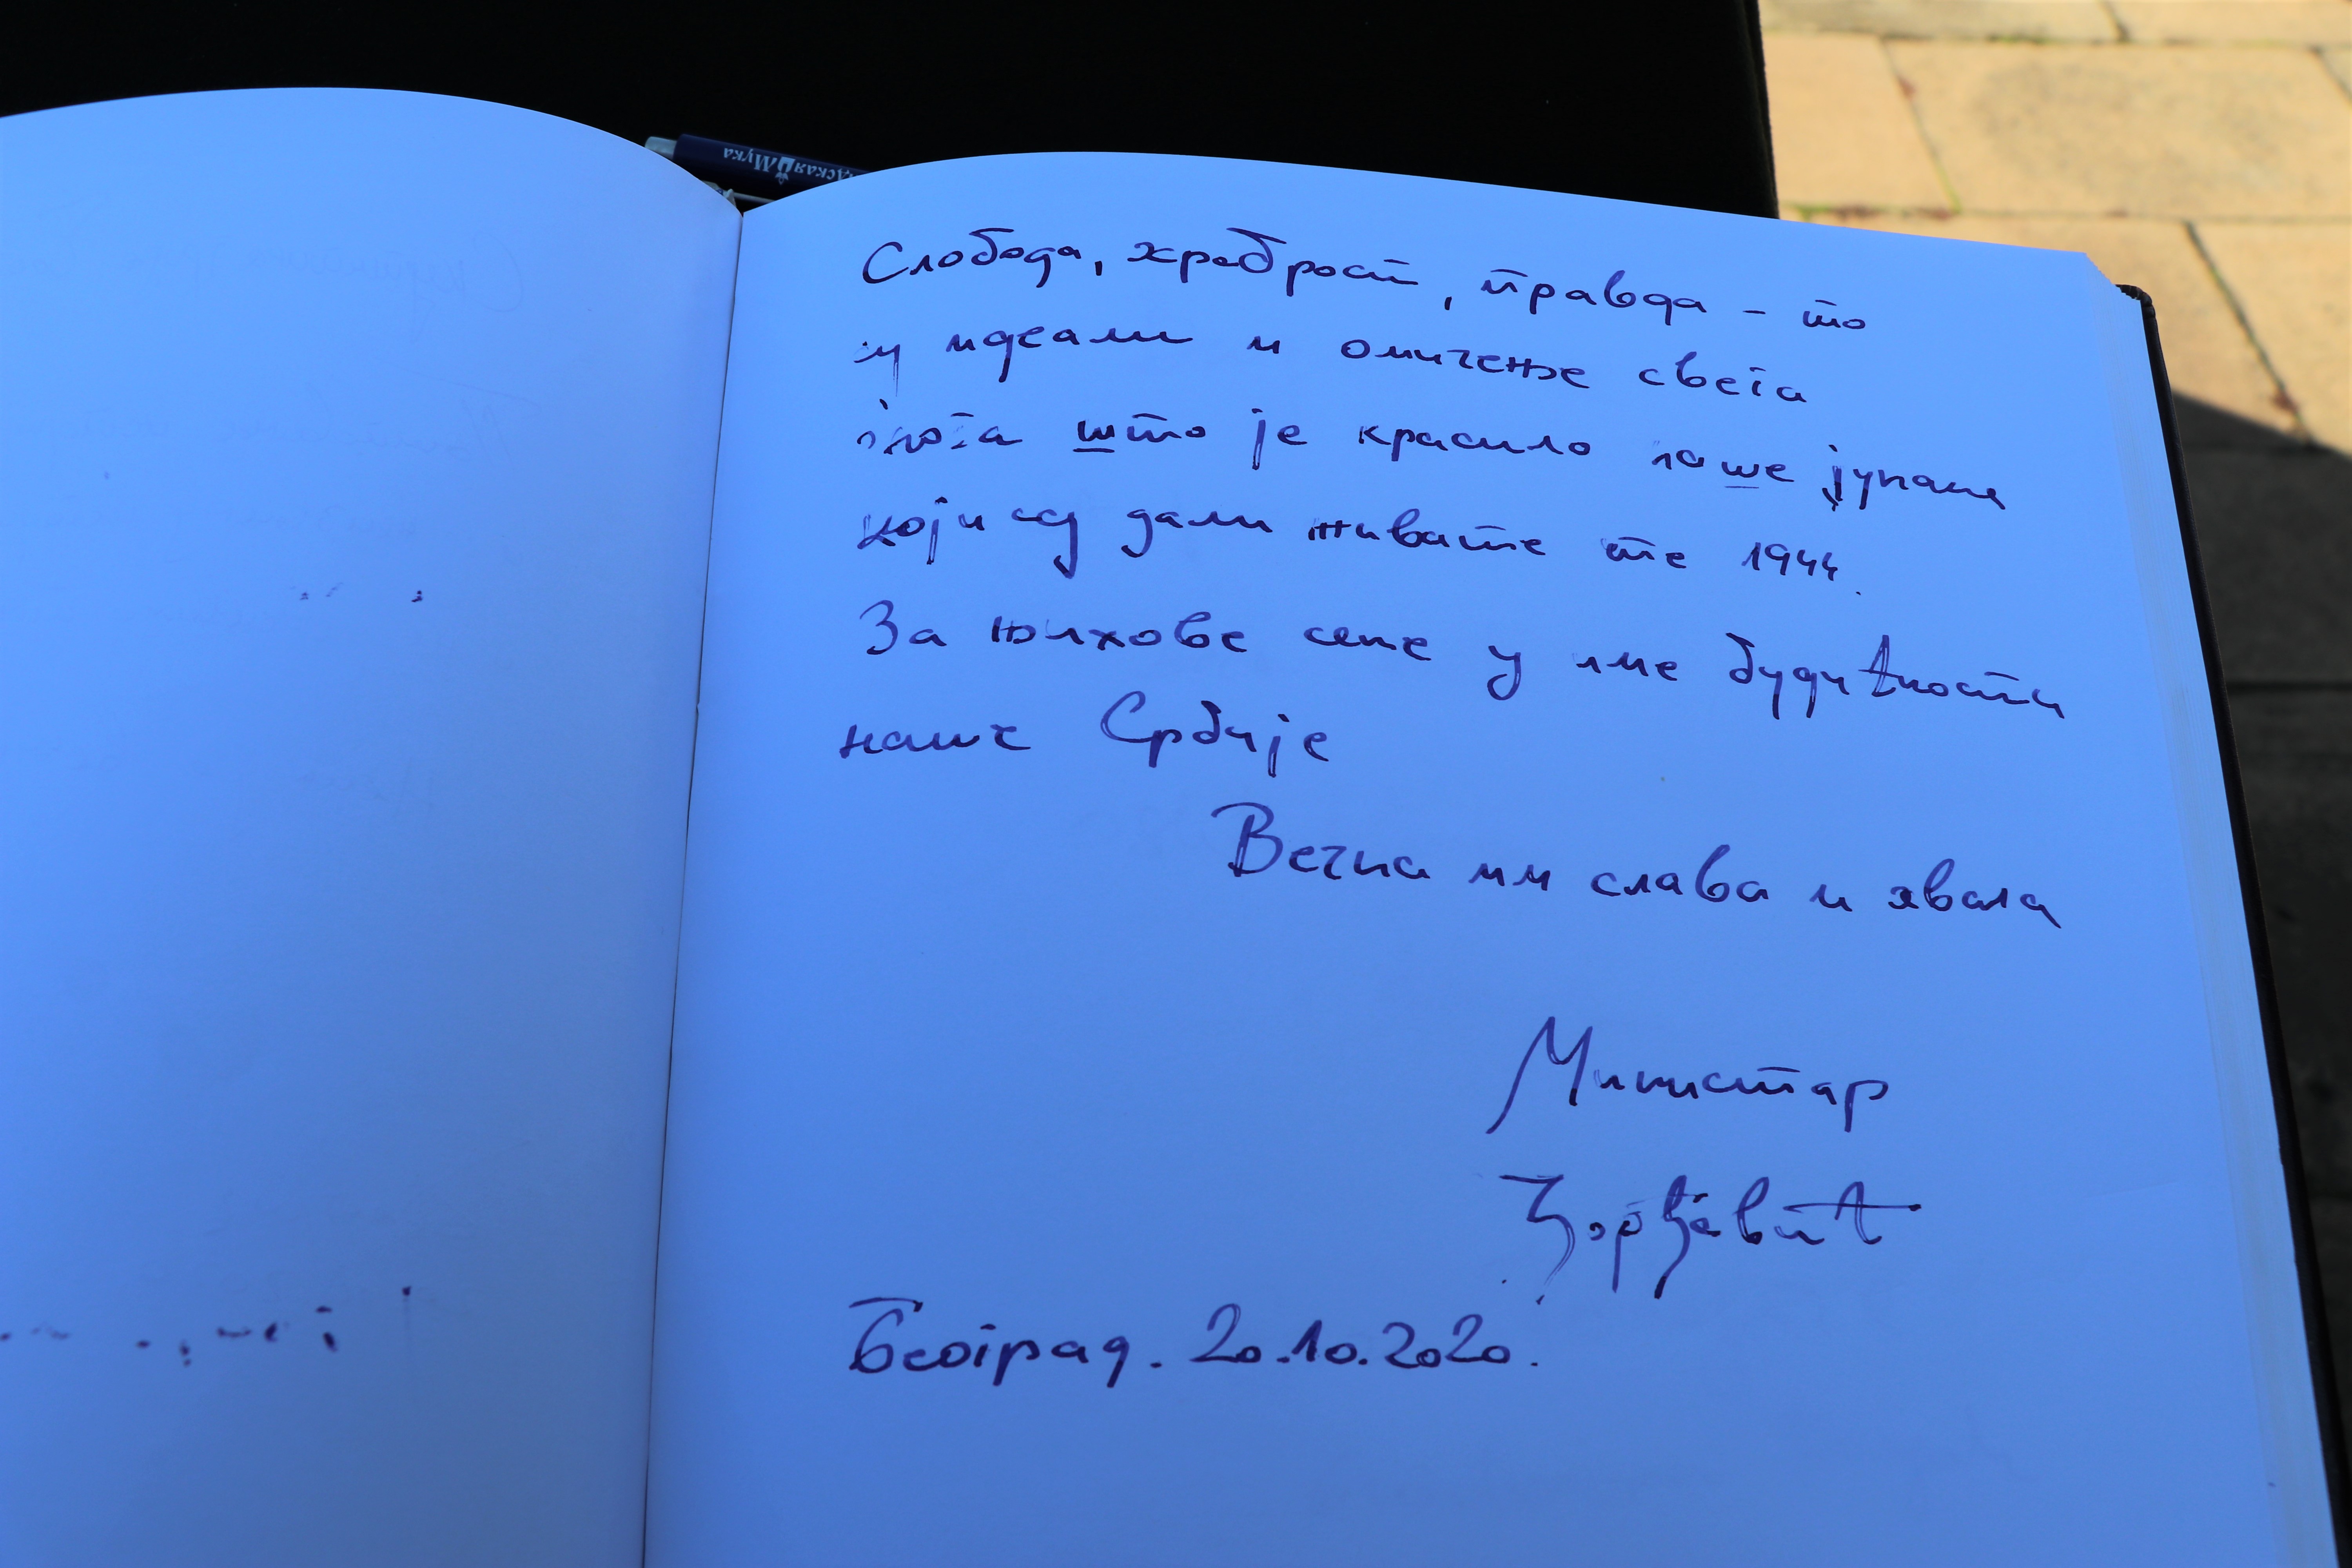 дская Мука
Слобода, храброст, правда - то
су идеали и оличење свега
онога што је красило наше јунаке
који су дали животе те 1944.
За њихове сене у име будућности
наше Србије
Вечна им слава и хвала
Министар
Ђорђевић
Београд. 20.10.2020.